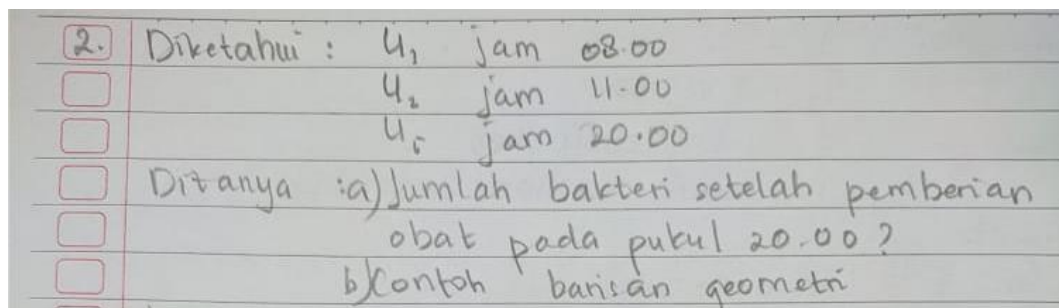 2. Diketahui : U₁ jam 08.00
U₂ jam 11.00
U₅ jam 20.00
Ditanya : a) Jumlah bakteri setelah pemberian
obat pada pukul 20.00?
b) Contoh barisan geometri